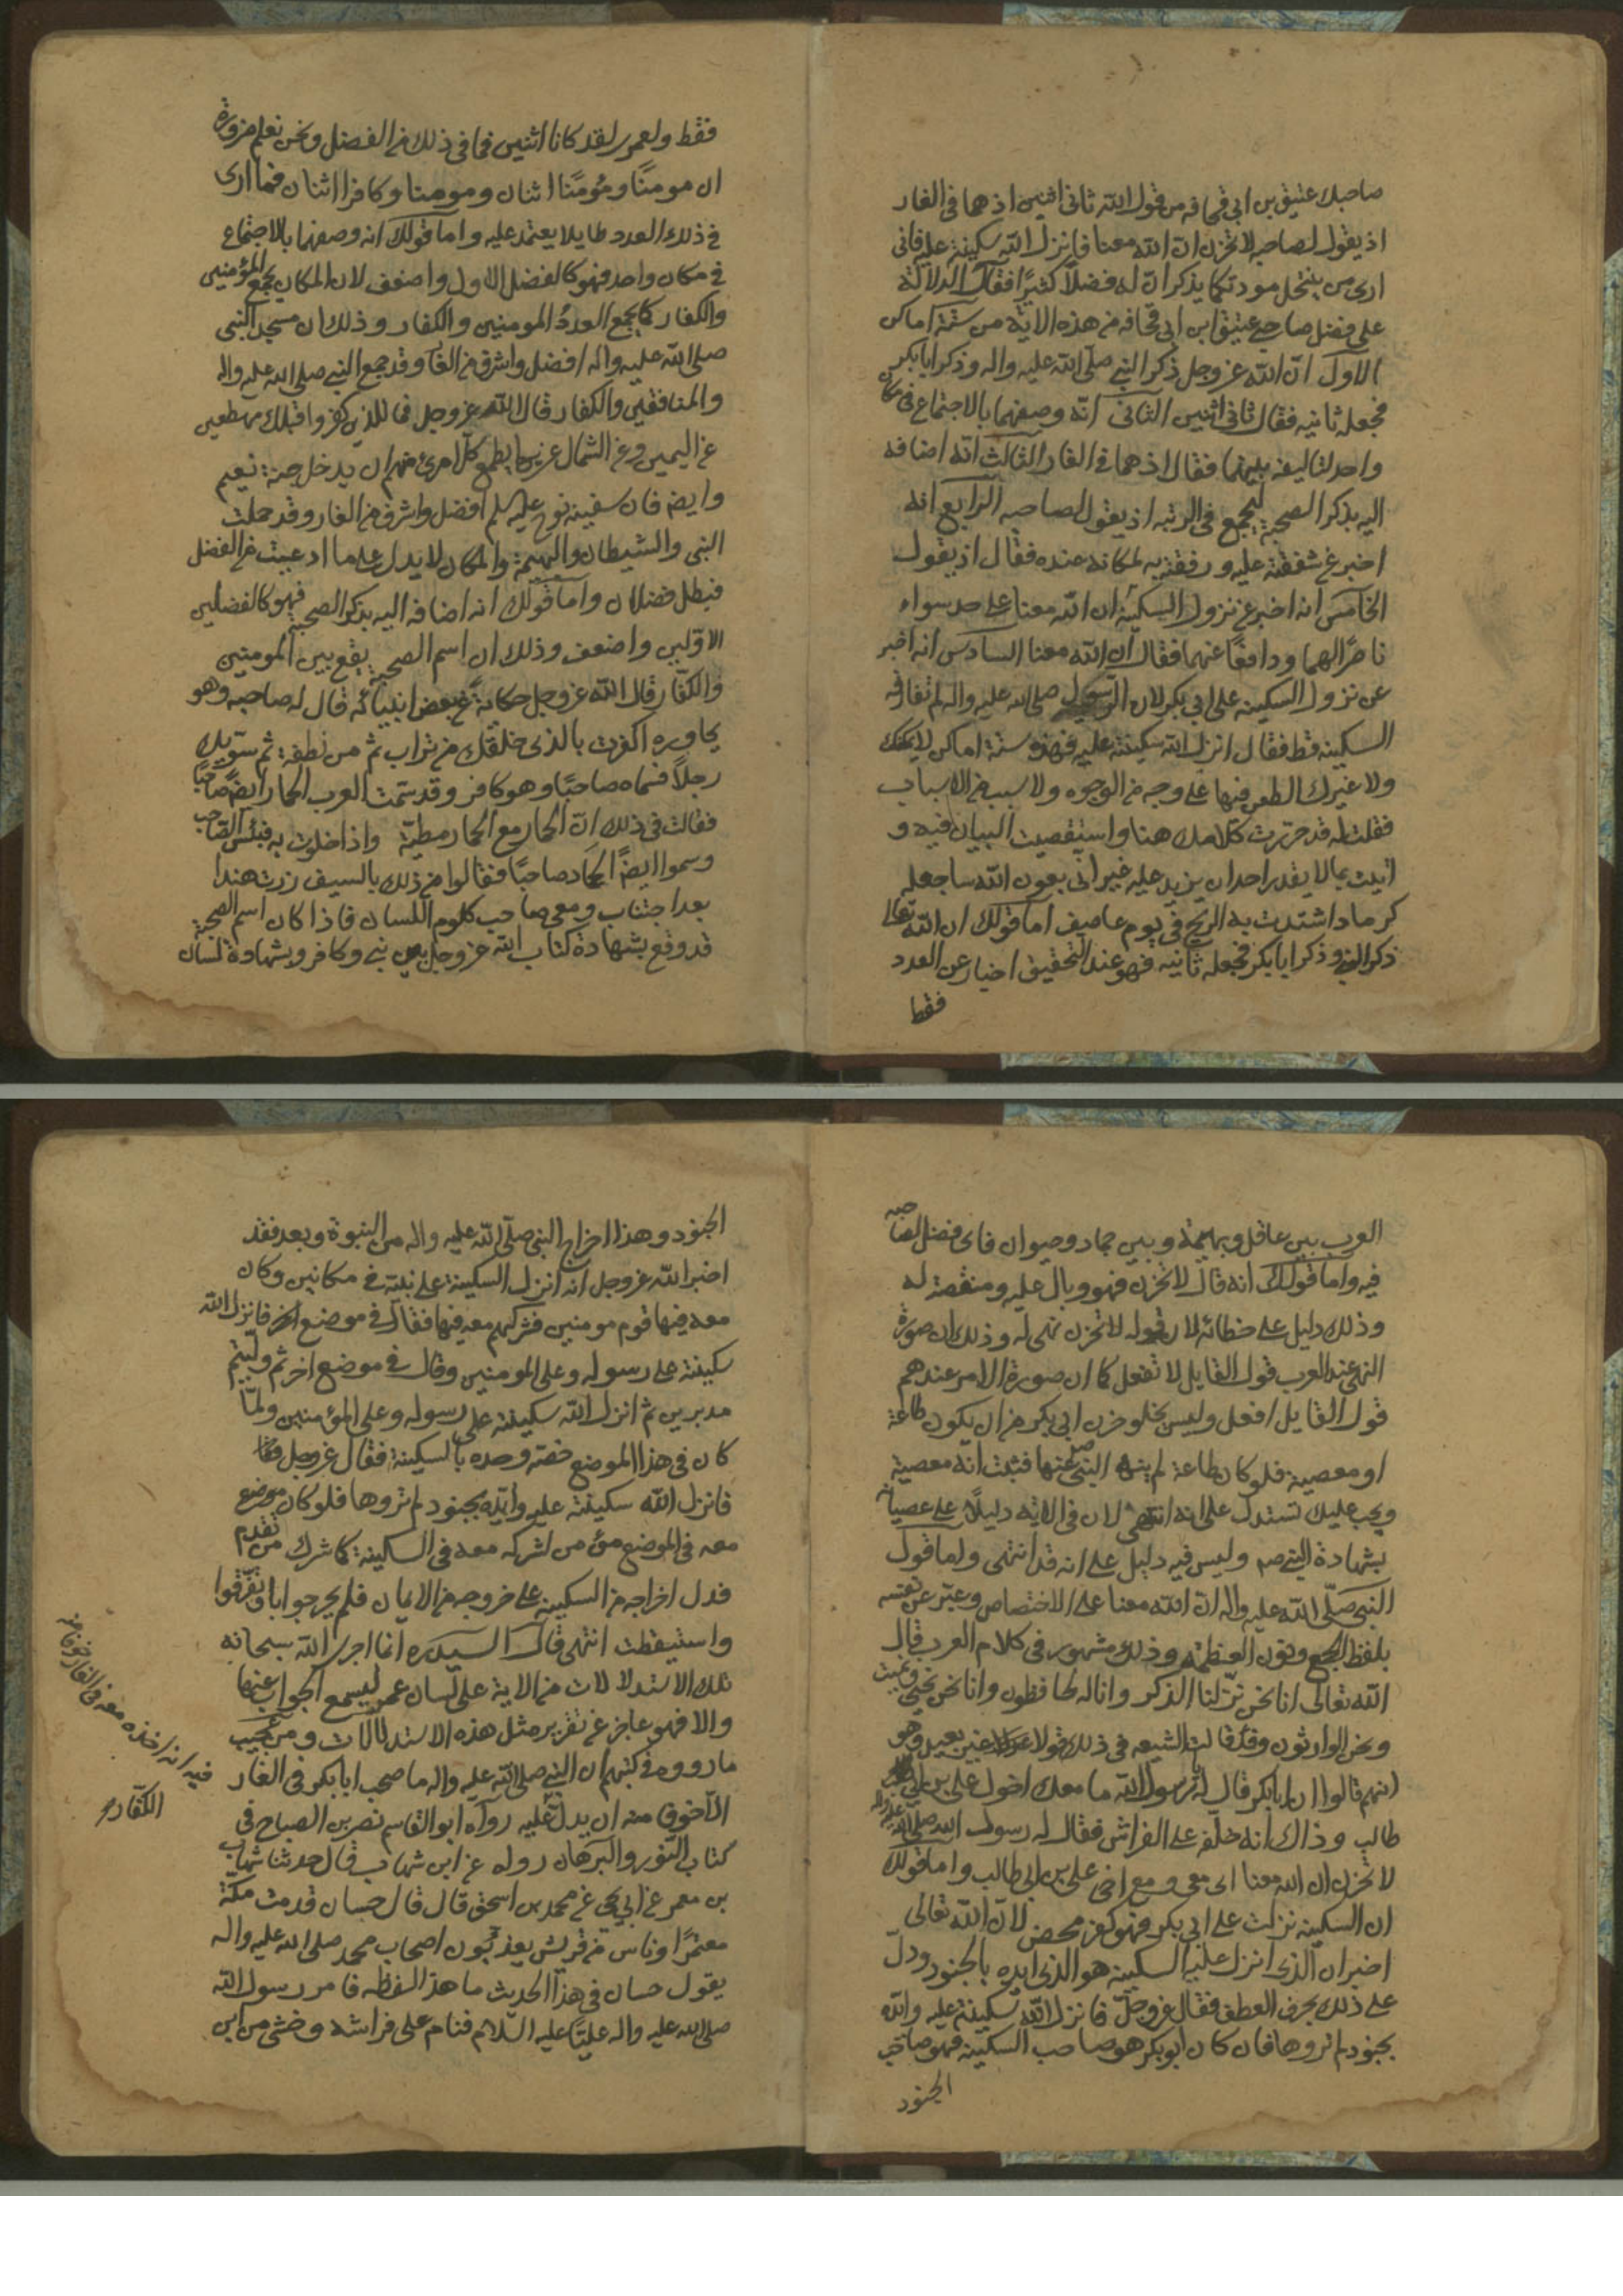 صاحبك عتيق بن ابى قحافه من قول الله ثانى اثنين اذ هما فى الغار
اذ يقول لصاحبه لا تحزن ان الله معنا فانزل الله سكينته عليه فانى
ارى من ينتحل مودتكما يذكر ان له فضلاً كثيرًا فقال الدلالة
على فضل صاحبى عتيق ابن ابى قحافه من هذه الاية من ستة اماكن
الاول ان الله عز وجل ذكر النبى صلى الله عليه واله وذكر ابا بكر
فجعله ثانيه فقال ثانى اثنين الثانى انه وصفهما بالاجتماع فى مكان
واحد لتاليفه بينهما فقال اذ هما فى الغار الثالث انه اضافه
اليه بذكر الصحبة ليجمع فى الرتبه اذ يقول لصاحبه الرابع انه
اخبر عن شفقته عليه ورفقته به لمكانه عنده فقال اذ يقول
الخامس انه اخبر عن نزول السكينة ان الله معنا على حد سواء
ناصرًا لهما ودافعًا عنهما فقال ان الله معنا السادس انه اخبر
عن نزول السكينه على ابى بكر لان الرسول صلى الله عليه واله لم تفارقه
السكينه قط فقال انزل الله سكينته عليه فهذه ستة اماكن لا يمكنك
ولا غيرك الطعن فيها على وجه من الوجوه ولا سبب من الاسباب
فقلت له قد حررت كلامك هنا واستقصيت البيان فيه و
اتيت بما لا يقدر احد ان يزيد عليه غير انى بعون الله ساجعله
كرماد اشتدت به الريح فى يوم عاصف اما قولك ان الله تعالى
ذكر النبى وذكر ابا بكر فجعله ثانيه فهو عند التحقيق اخبار عن العدد
فقط
فقط ولعمرى لقد كانا اثنين فما فى ذلك من الفضل ونحن نعلم ضرورة
ان مومنًا ومُومنًا اثنان ومومنا وكافرا اثنان فما ارى
فى ذلك العدد طايلا يعتمد عليه واما قولك انه وصفهما بالاجتماع
فى مكان واحد فهو كالفضل الاول واضعف لان المكان يجمع المؤمنين
والكفار كما يجمع العددُ المومنين والكفار وذلك ان مسجد النبى
صلى الله عليه واله افضل واشرف من الغار وقد جمع النبى صلى الله عليه واله
والمنافقين والكفار قال الله عز وجل فما للذين كفروا قبلك مهطعين
عن اليمين وعن الشمال عزين ايطمع كل امرئ منهم ان يدخل جنة نعيم
وايضا فان سفينة نوح عليه السلم افضل واشرف من الغار وقد حملت
النبى والشيطان والبهيمة والمكان لا يدل على ما ادعيت من الفضل
فبطل فضلان واما قولك انه اضافه اليه بذكر الصحبة فهو كالفضلين
الاولين واضعف وذلك ان اسم الصحبة يقع بين المومنين
والكفار قال الله عز وجل حكاية عن بعض انبيائه قال له صاحبه وهو
يحاوره اكفرت بالذى خلقك من تراب ثم من نطفة ثم سويك
رجلاً فسماه صاحبًا وهو كافر وقد سمت العرب الحمار ايضًا صاحبًا
فقالت فى ذلك ان الحمار مع الحمار مطية واذا خلوت به فبئس الصاحب
وسموا ايضًا الجماد صاحبًا فقالوا من ذلك بالسيف زرت هندا
بعد اجتناب ومعى صاحب كلوم اللسان فاذا كان اسم الصحبة
قد وقع بشهادة كتاب الله عز وجل بين نبى وكافر وبشهادة لسان
العرب بين عاقل وبهيمة وبين جماد وحيوان فاى فضل لصاحبه
فيه واما قولك انه قال لا تحزن فهو وبال عليه ومنقصة له
وذلك دليل على خطائه لان قوله لا تحزن نهى له وذلك ان صورة
النهى عند العرب قول القايل لا تفعل كما ان صورة الامر عندهم
قول القايل افعل وليس يخلو حزن ابى بكر من ان يكون طاعة
او معصية فلو كان طاعة لم ينه النبى ص عنها فثبت انه معصية
ويجب عليك تستدل على انه انتهى لان فى الاية دليلاً على عصيانه
بشهادة النبى صم وليس فيه دليل على انه قد انتهى واما قول
النبى صلى الله عليه واله ان الله معنا على الاختصاص وعبر عن نفسه
بلفظ الجمع ونون العظمة وذلك مشهور فى كلام العرب قال
الله تعالى انا نحن نزلنا الذكر وانا له لحافظون وانا نحن نحيى ونميت
ونحن الوارثون وقد قالت الشيعه فى ذلك قولا غير بعيد وهو
انهم قالوا ان ابا بكر قال له يا رسول الله ما معك اخوك على بن ابى
طالب وذاك انه خلفه على الفراش فقال له رسول الله صلى الله عليه واله
لا تحزن ان الله معنا اى معى ومع اخى على بن ابى طالب واما قولك
ان السكينه نزلت على ابى بكر فهو كفر محض لان الله تعالى
اخبر ان الذى انزل عليه السكينه هو الذى ايده بالجنود ودل
على ذلك بحرف العطف فقال عز وجل فانزل الله سكينته عليه وايده
بجنود لم تروها فان كان ابو بكر هو صاحب السكينه فهو صاحب
الجنود
الجنود وهذا اخراج النبى صلى الله عليه واله من النبوة وبعد فقد
اخبر الله عز وجل انه انزل السكينة على نبيه فى مكانين وكان
معه فيها قوم مومنين فشركهم معه فيها فقال فى موضع اخر فانزل الله
سكينته على رسوله وعلى المومنين وقال فى موضع اخر ثم وليتم
مدبرين ثم انزل الله سكينته على رسوله وعلى المؤمنين ولما
كان فى هذا الموضع خصه وحده بالسكينة فقال عز وجل
فانزل الله سكينته عليه وايده بجنود لم تروها فلو كان موضع
معه فى الموضع مؤمن لشركه معه فى السكينة كما شرك من تقدم
فدل اخراجه من السكينة على خروجه من الايمان فلم يرجوابا وتفرقوا
واستيقظت انتهى قال السيد ره انما اجرى الله سبحانه
تلك الاستدلالات من الاية على لسان عمر ليسمع الجواب عنها
والا فهو عاجز عن تقرير مثل هذه الاستدلالات ومن عجيب
ما رووه فى كتبهم ان النبى صلى الله عليه واله ما صحب ابا بكر فى الغار
الا خوفا منه ان يدل عليه رواه ابو القاسم نصر بن الصباح فى
كتاب النور والبرهان رواه عن ابن شهاب قال حدثنا شهاب
بن معمر عن ابى يحيى عن محمد بن اسحق قال قال حسان قدمت مكة
معتمرًا وناس من قريش يعذبون اصحاب محمد صلى الله عليه واله
يقول حسان فى هذا الحديث ما هذا لفظه فامر رسول الله
صلى الله عليه واله عليًا عليه السلام فنام على فراشه وخشى من ابن
فيه انه اخذه معه فى الغار خوفا من
الكفار